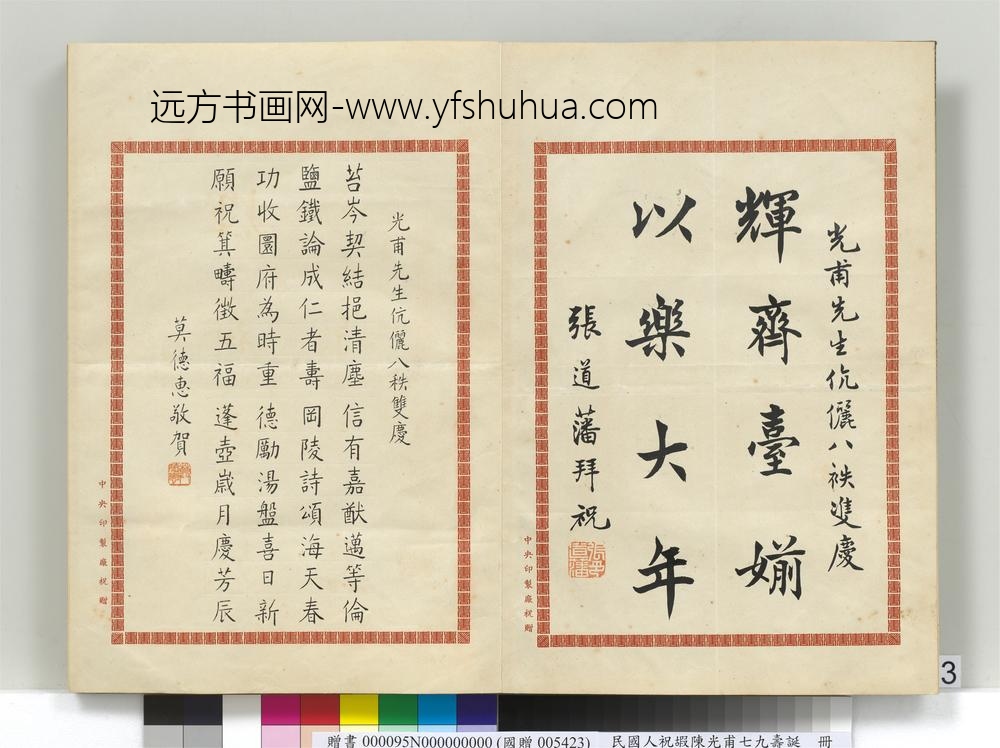 远方书画网-www.yfshuhua.com
光甫先生伉儷八袟雙慶
輝齊臺婺
以樂大年
張道藩拜祝
中央印製廠祝贈
光甫先生伉儷八秩雙慶
苔岑契結挹清塵 信有嘉猷邁等倫
鹽鐵論成仁者壽 岡陵詩頌海天春
功收圜府為時重 德勵湯盤喜日新
願祝箕疇徵五福 蓬壺歲月慶芳辰
莫德惠敬賀
中央印製廠祝贈
3
贈書 000095N000000000 (國贈 005423) 民國人祝嘏陳光甫七九壽誕 冊